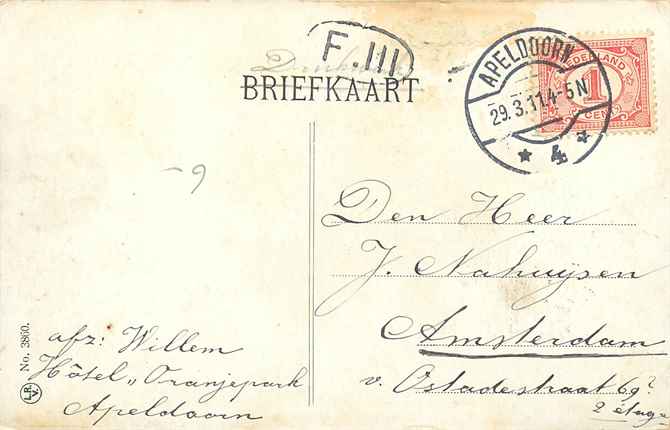 F.III
BRIEFKAART
APELDOORN
29.3.11.4-5N
4
NEDERLAND
1
CENT
-9
Den Heer
J. Nahuysen
Amsterdam
v. Ostadestraat 69
2 étage
afz: Willem
Hôtel „Oranjepark
Apeldoorn
No. 3860.
L.R.
V.